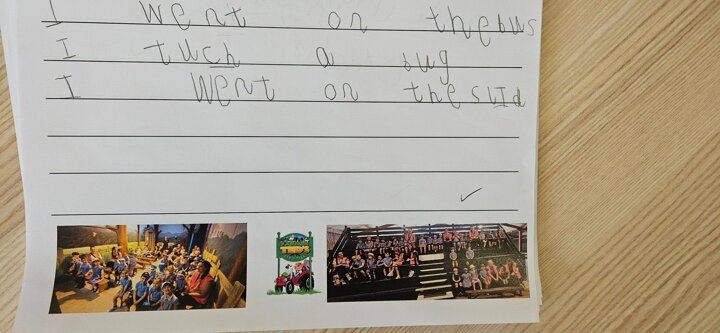 I went on thebus
I tuch a bug
I went on the slId